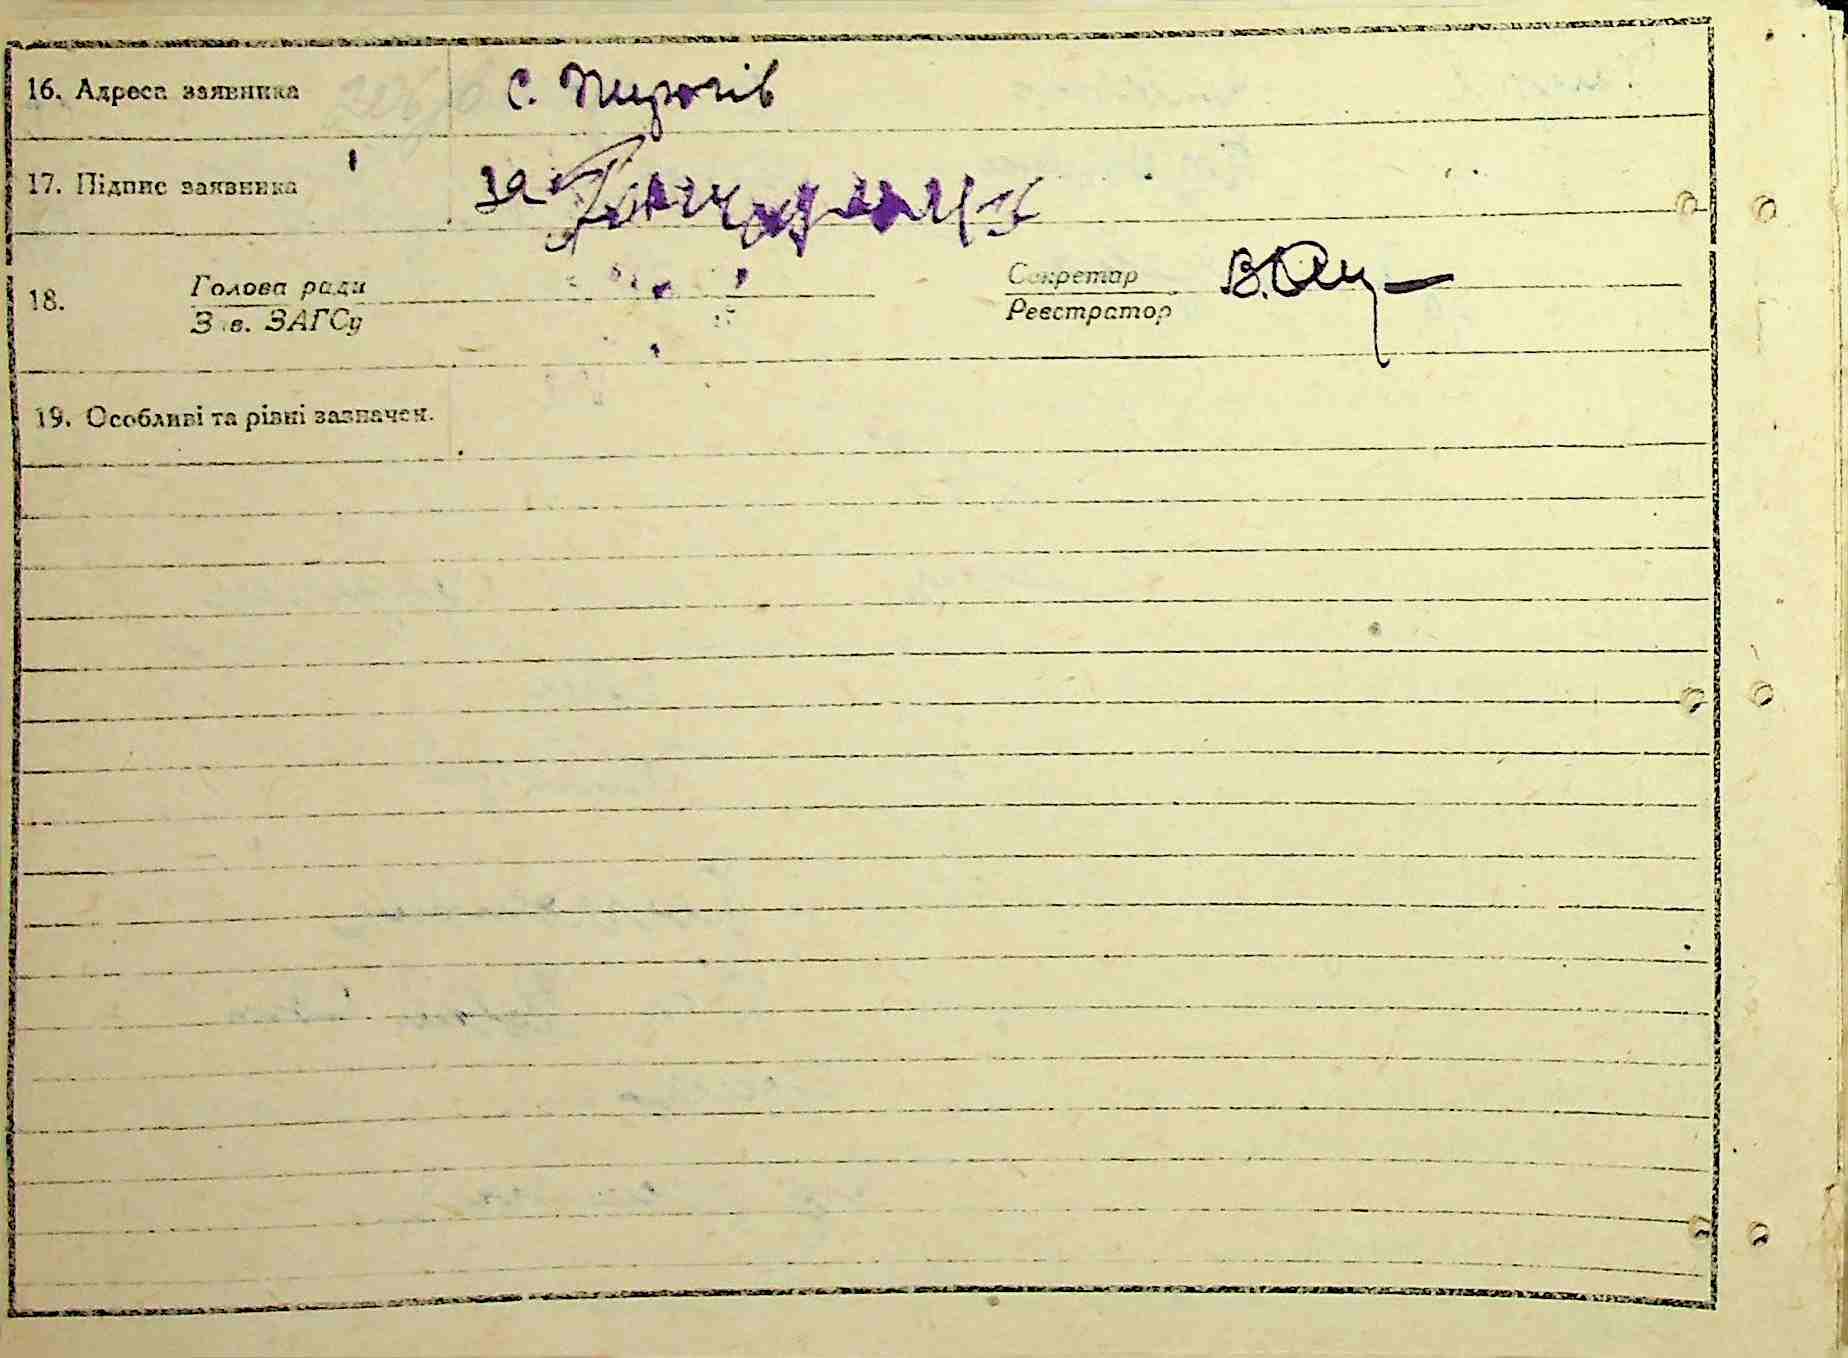 16. Адреса заявника с. Пирогів
17. Підпис заявника за
18. Голова ради Секретар
Зав. ЗАГСу Реєстратор
19. Особливі та різні зазначен.